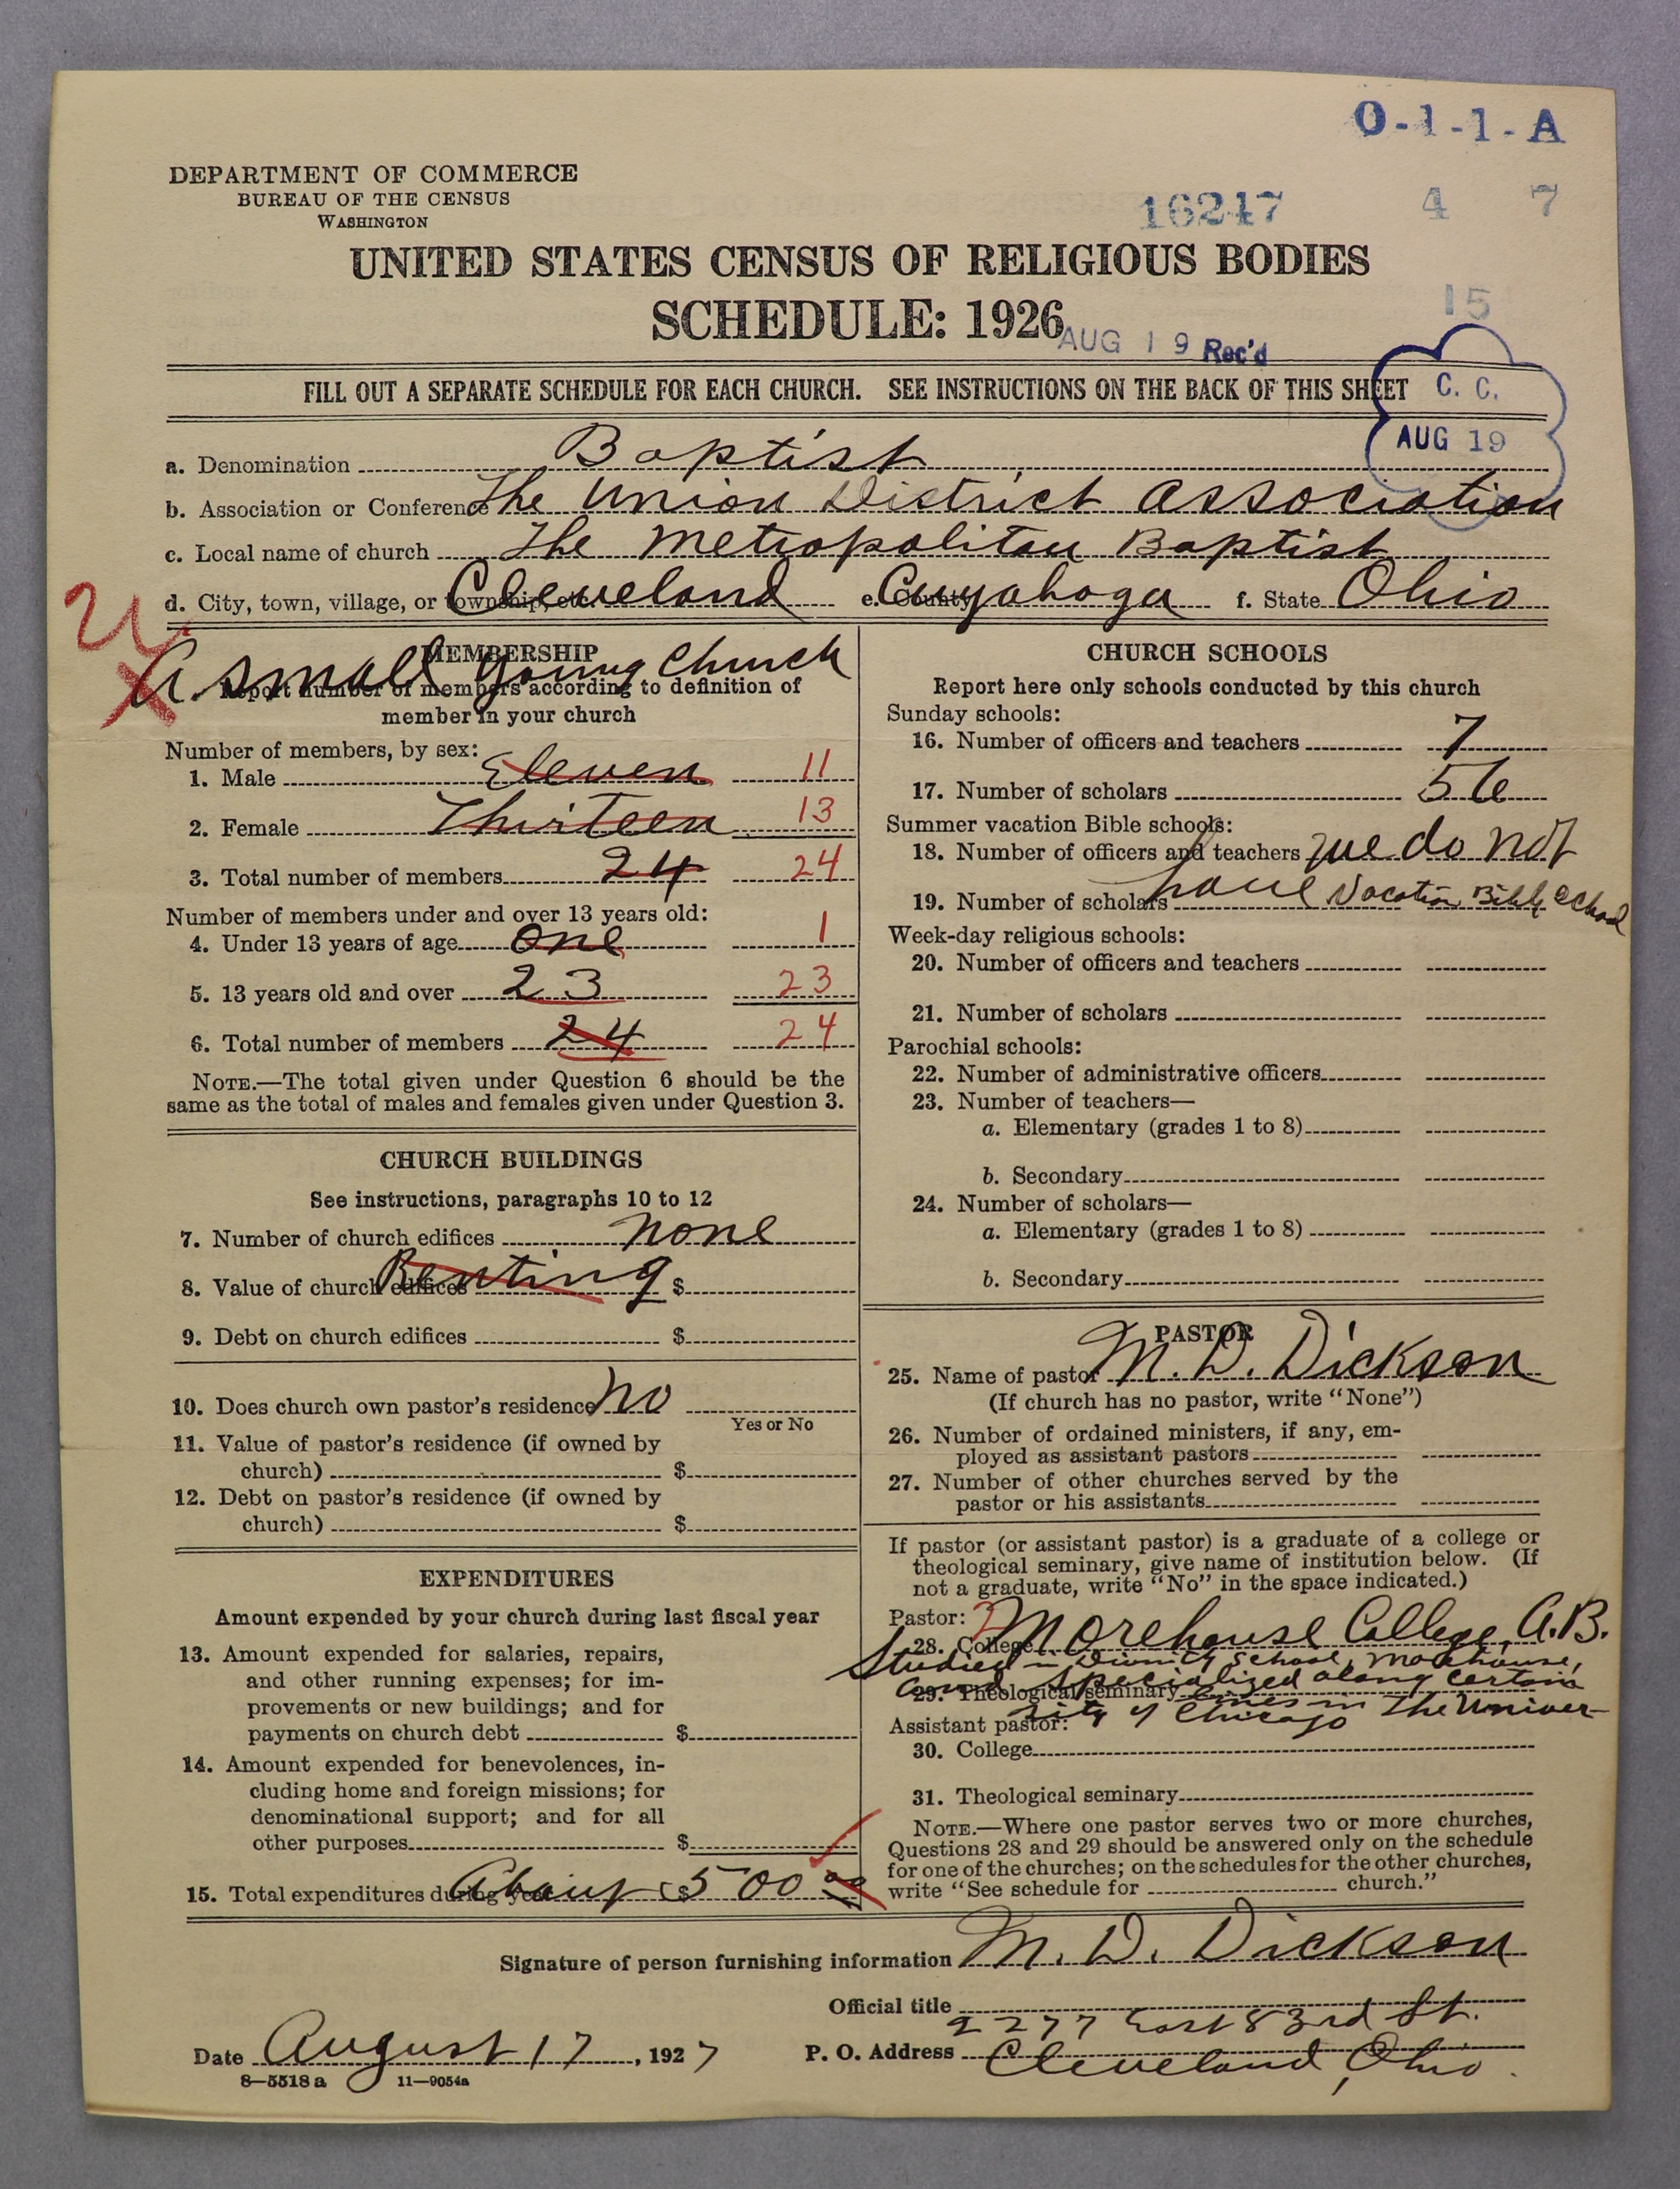 O-1-1-A
DEPARTMENT OF COMMERCE
BUREAU OF THE CENSUS
WASHINGTON
16247 4 7
UNITED STATES CENSUS OF RELIGIOUS BODIES
SCHEDULE: 1926
15
AUG 19 Rec'd
FILL OUT A SEPARATE SCHEDULE FOR EACH CHURCH. SEE INSTRUCTIONS ON THE BACK OF THIS SHEET
C. C.
AUG 19
a. Denomination Baptist
b. Association or Conference The Union District Association
c. Local name of church The Metropolitan Baptist
d. City, town, village, or township, etc. Cleveland e. County Cuyahoga f. State Ohio
MEMBERSHIP
A small young church
Report number of members according to definition of
member in your church
Number of members, by sex:
1. Male Eleven 11
2. Female Thirteen 13
3. Total number of members 24 24
Number of members under and over 13 years old:
4. Under 13 years of age One 1
5. 13 years old and over 23 23
6. Total number of members 24 24
NOTE.—The total given under Question 6 should be the
same as the total of males and females given under Question 3.
CHURCH BUILDINGS
See instructions, paragraphs 10 to 12
7. Number of church edifices none
8. Value of church edifices Renting $
9. Debt on church edifices $
10. Does church own pastor's residence No
Yes or No
11. Value of pastor's residence (if owned by
church) $
12. Debt on pastor's residence (if owned by
church) $
EXPENDITURES
Amount expended by your church during last fiscal year
13. Amount expended for salaries, repairs,
and other running expenses; for im-
provements or new buildings; and for
payments on church debt $
14. Amount expended for benevolences, in-
cluding home and foreign missions; for
denominational support; and for all
other purposes $
15. Total expenditures during year About $500 00
CHURCH SCHOOLS
Report here only schools conducted by this church
Sunday schools:
16. Number of officers and teachers 7
17. Number of scholars 56
Summer vacation Bible schools:
18. Number of officers and teachers We do not
19. Number of scholars have Vacation Bible School
Week-day religious schools:
20. Number of officers and teachers
21. Number of scholars
Parochial schools:
22. Number of administrative officers
23. Number of teachers—
a. Elementary (grades 1 to 8)
b. Secondary
24. Number of scholars—
a. Elementary (grades 1 to 8)
b. Secondary
PASTOR
25. Name of pastor M. D. Dickson
(If church has no pastor, write "None")
26. Number of ordained ministers, if any, em-
ployed as assistant pastors
27. Number of other churches served by the
pastor or his assistants
If pastor (or assistant pastor) is a graduate of a college or
theological seminary, give name of institution below. (If
not a graduate, write "No" in the space indicated.)
Pastor: 2
28. College Morehouse College, A.B.
Studied in Divinity School, Morehouse,
and specialized along certain
29. Theological seminary lines in The Univer-
sity of Chicago
Assistant pastor:
30. College
31. Theological seminary
NOTE.—Where one pastor serves two or more churches,
Questions 28 and 29 should be answered only on the schedule
for one of the churches; on the schedules for the other churches,
write "See schedule for church."
Signature of person furnishing information M. D. Dickson
Official title
2277 East 83rd St.
Date August 17, 1927 P. O. Address Cleveland, Ohio.
8—5518 a 11—9054a